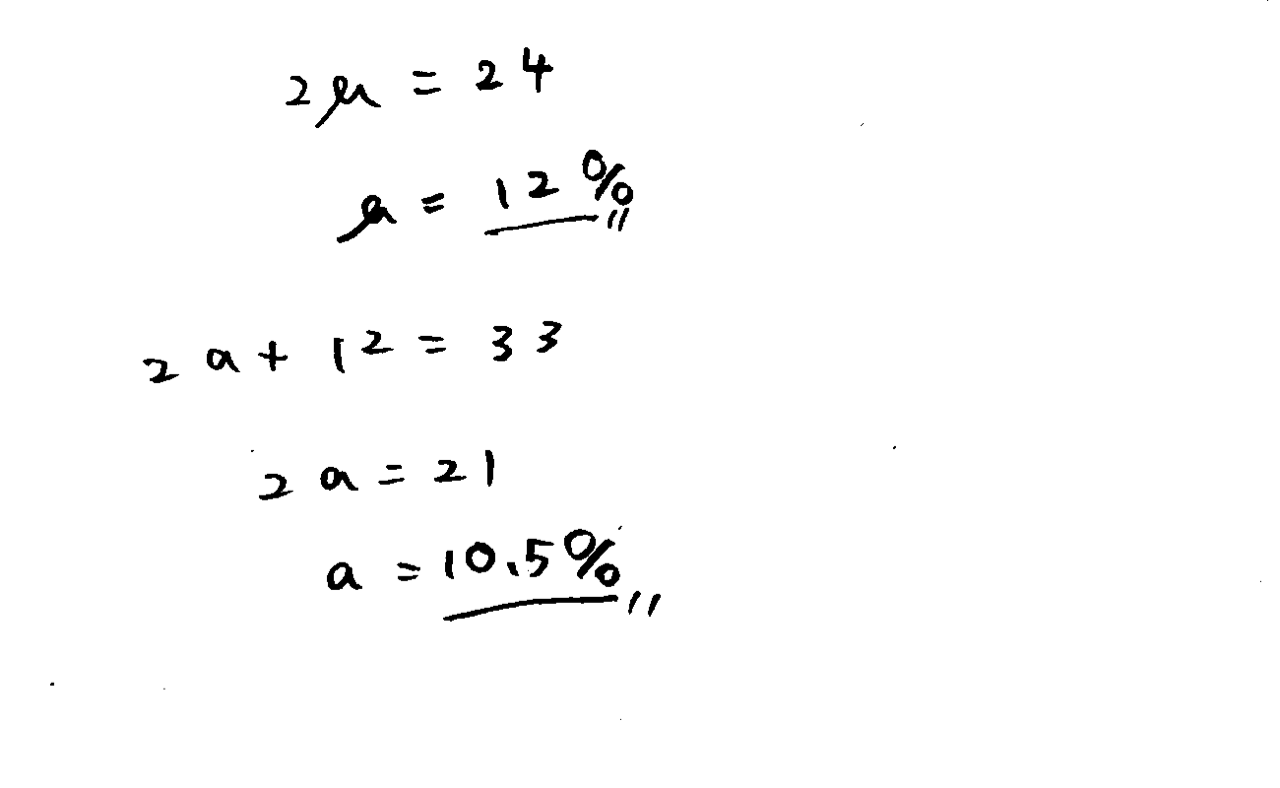 2μ = 24
μ = 12%
2a + 12 = 33
2a = 21
a = 10.5%